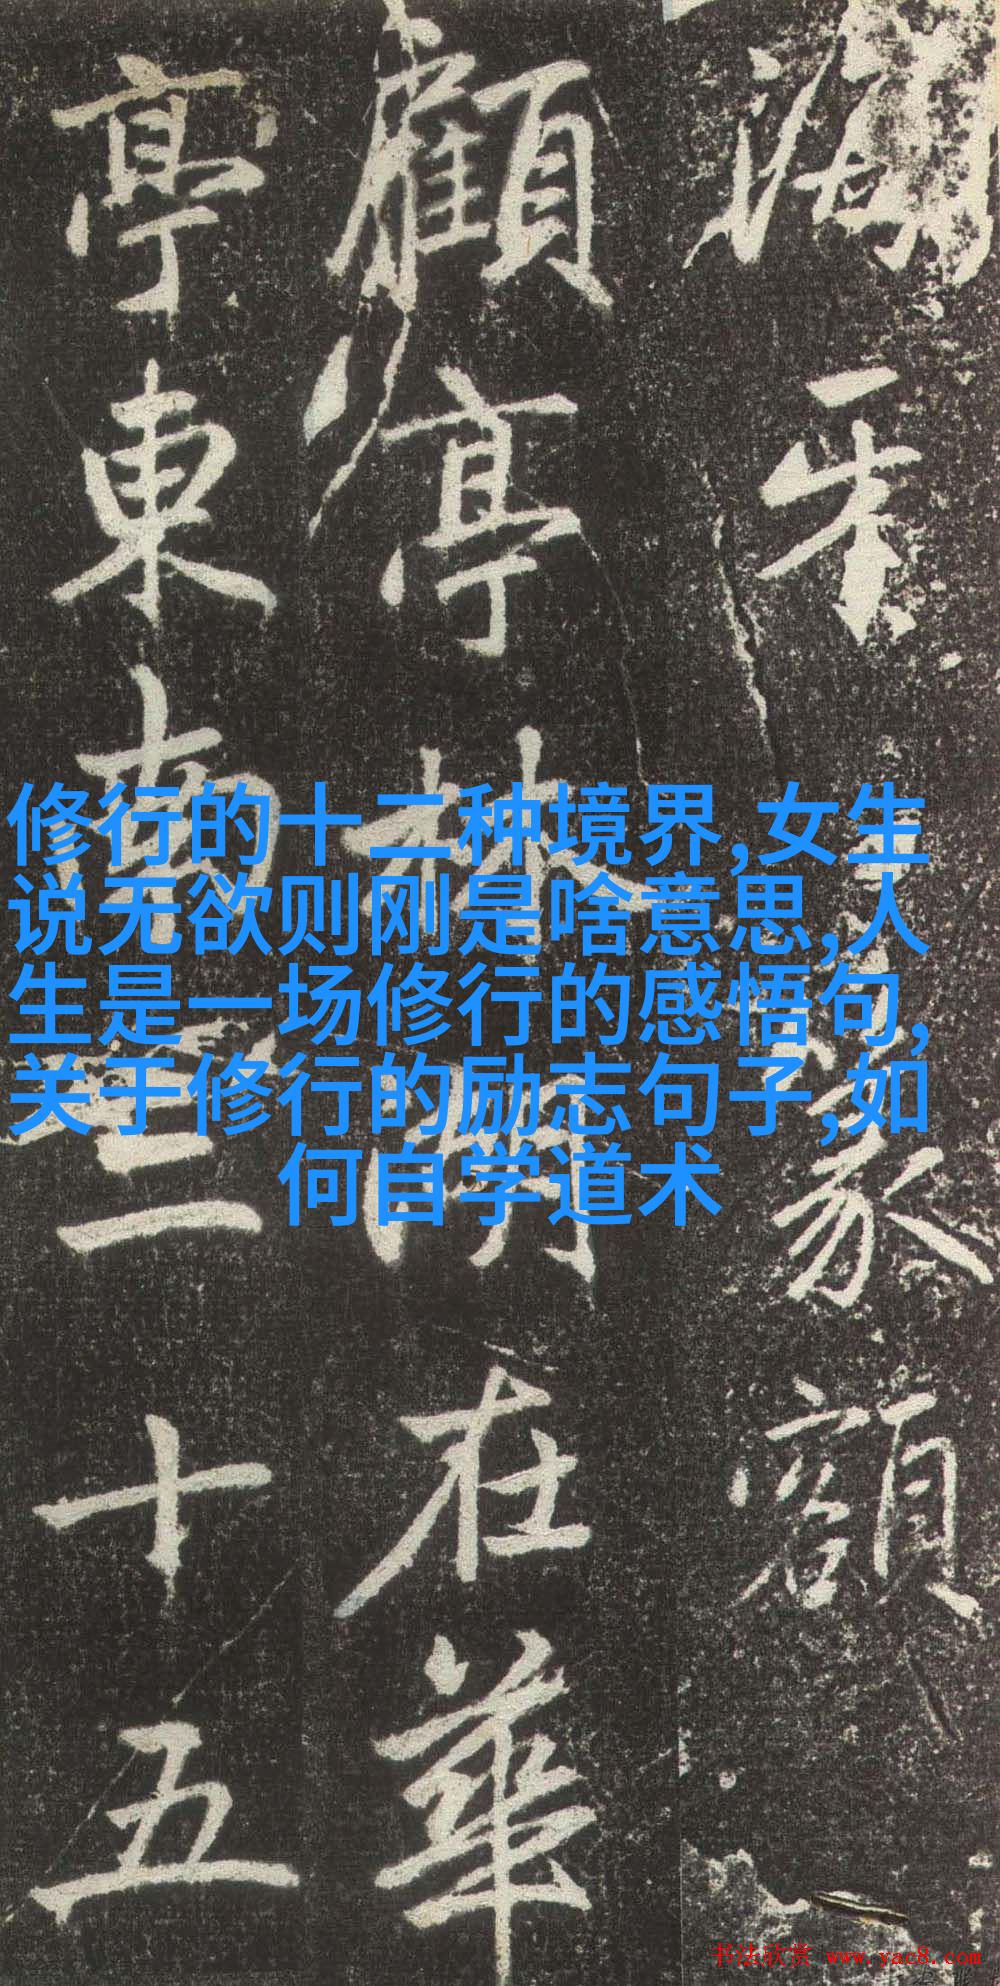 篆額
顧亭林湖在華
亭東南三十五
修行的十二种境界,女生
说无欲则刚是啥意思,人
生是一场修行的感悟句,
关于修行的励志句子,如
何自学道术
书法欣赏 www.yac8.com